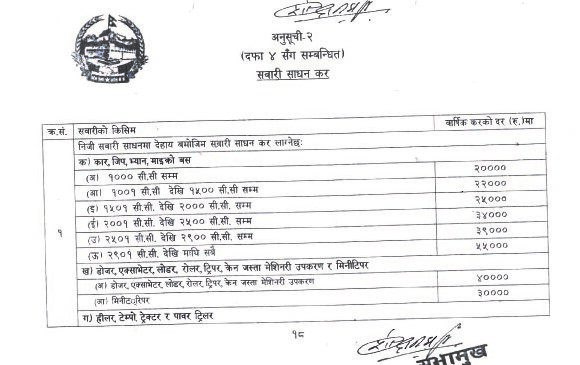 अनुसूची-२
(दफा ४ सँग सम्बन्धित)
सवारी साधन कर
क्र.सं. सवारीको किसिम वार्षिक करको दर (रु.)मा
१
निजी सवारी साधनमा देहाय बमोजिम सवारी साधन कर लाग्नेछः
क) कार, जिप, भ्यान, माइक्रो बस
(अ) १००० सी.सी. सम्म २००००
(आ) १००१ सी.सी देखि १५०० सी.सी. सम्म २२०००
(इ) १५०१ सी.सी. देखि २००० सी.सी. सम्म २५०००
(ई) २००१ सी.सी. देखि २५०० सी.सी. सम्म ३४०००
(उ) २५०१ सी.सी. देखि २९०० सी.सी. सम्म ३९०००
(ऊ) २९०१ सी.सी. देखि माथि सबै ५५०००
ख) डोजर, एक्साभेटर, लोडर, रोलर, ट्रिपर, केन जस्ता मेशिनरी उपकरण र मिनीटिपर
(अ) डोजर, एक्साभेटर, लोडर, रोलर, ट्रिपर, केन जस्ता मेशिनरी उपकरण ४००००
(आ) ३००००
ग) ह्वीलर, टेम्पो, ट्रेक्टर र पावर ट्रिलर
१८
सभामुख